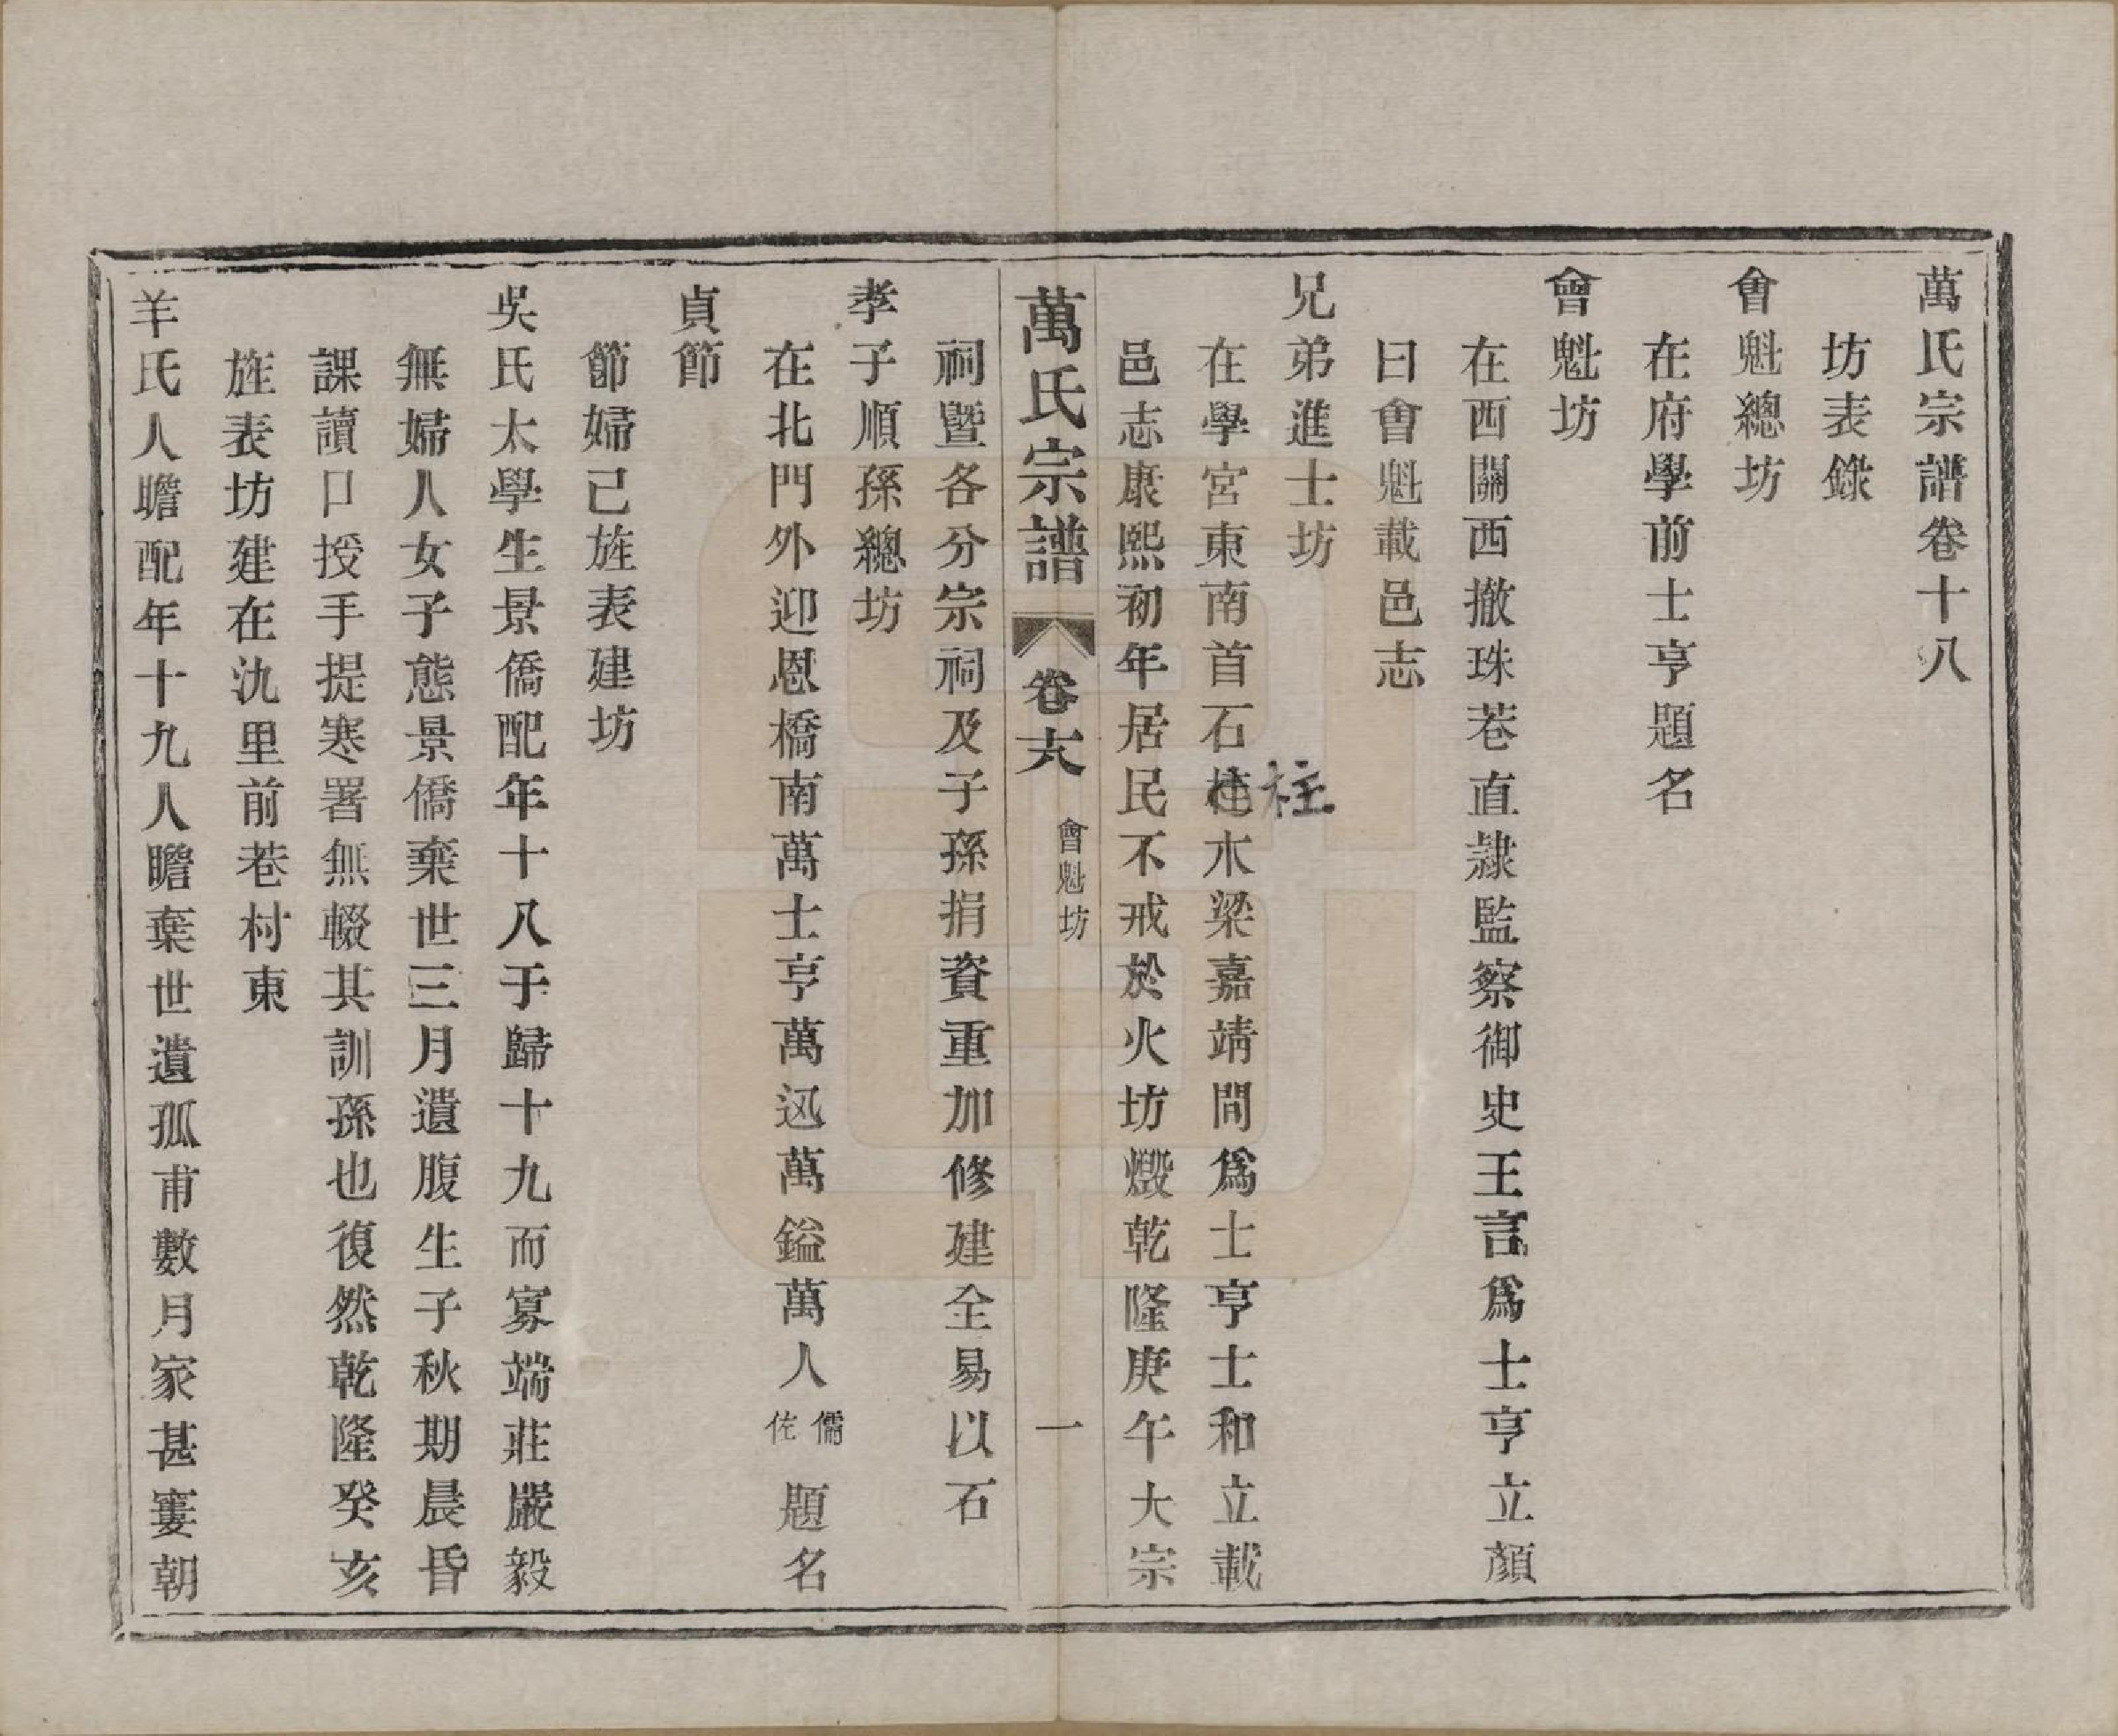 萬氏宗譜卷十八
坊表錄
會魁總坊
在府學前士亨題名
會魁坊
在西關西撤珠巷直隷監察御史王言爲士亨立顏
曰會魁載邑志
兄弟進士坊
在學宮東南首石柱木梁嘉靖間爲士亨士和立載
柱
邑志康熙初年居民不戒於火坊燬乾隆庚午大宗
萬氏宗譜 卷十八 會魁坊 一
祠暨各分宗祠及子孫捐資重加修建全易以石
孝子順孫總坊
在北門外迎恩橋南萬士亨萬迅萬鎰萬人儒佐題名
貞節
節婦已旌表建坊
吳氏太學生景僑配年十八于歸十九而寡端莊嚴毅
無婦人女子態景僑棄世三月遺腹生子秋期晨昏
課讀口授手提寒暑無輟其訓孫也復然乾隆癸亥
旌表坊建在氿里前巷村東
羊氏人瞻配年十九人瞻棄世遺孤甫數月家甚窶朝